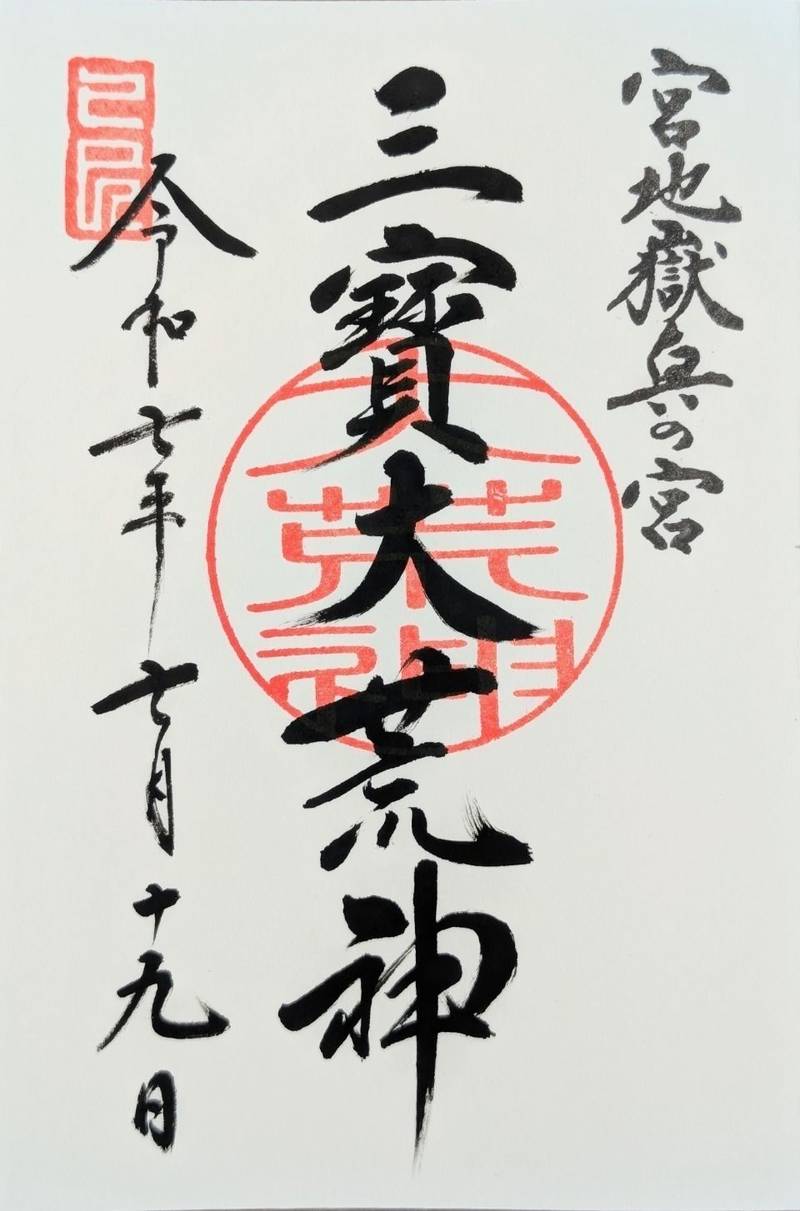 宮地嶽奥の宮
三寶大荒神
大荒神
令和七年七月十九日